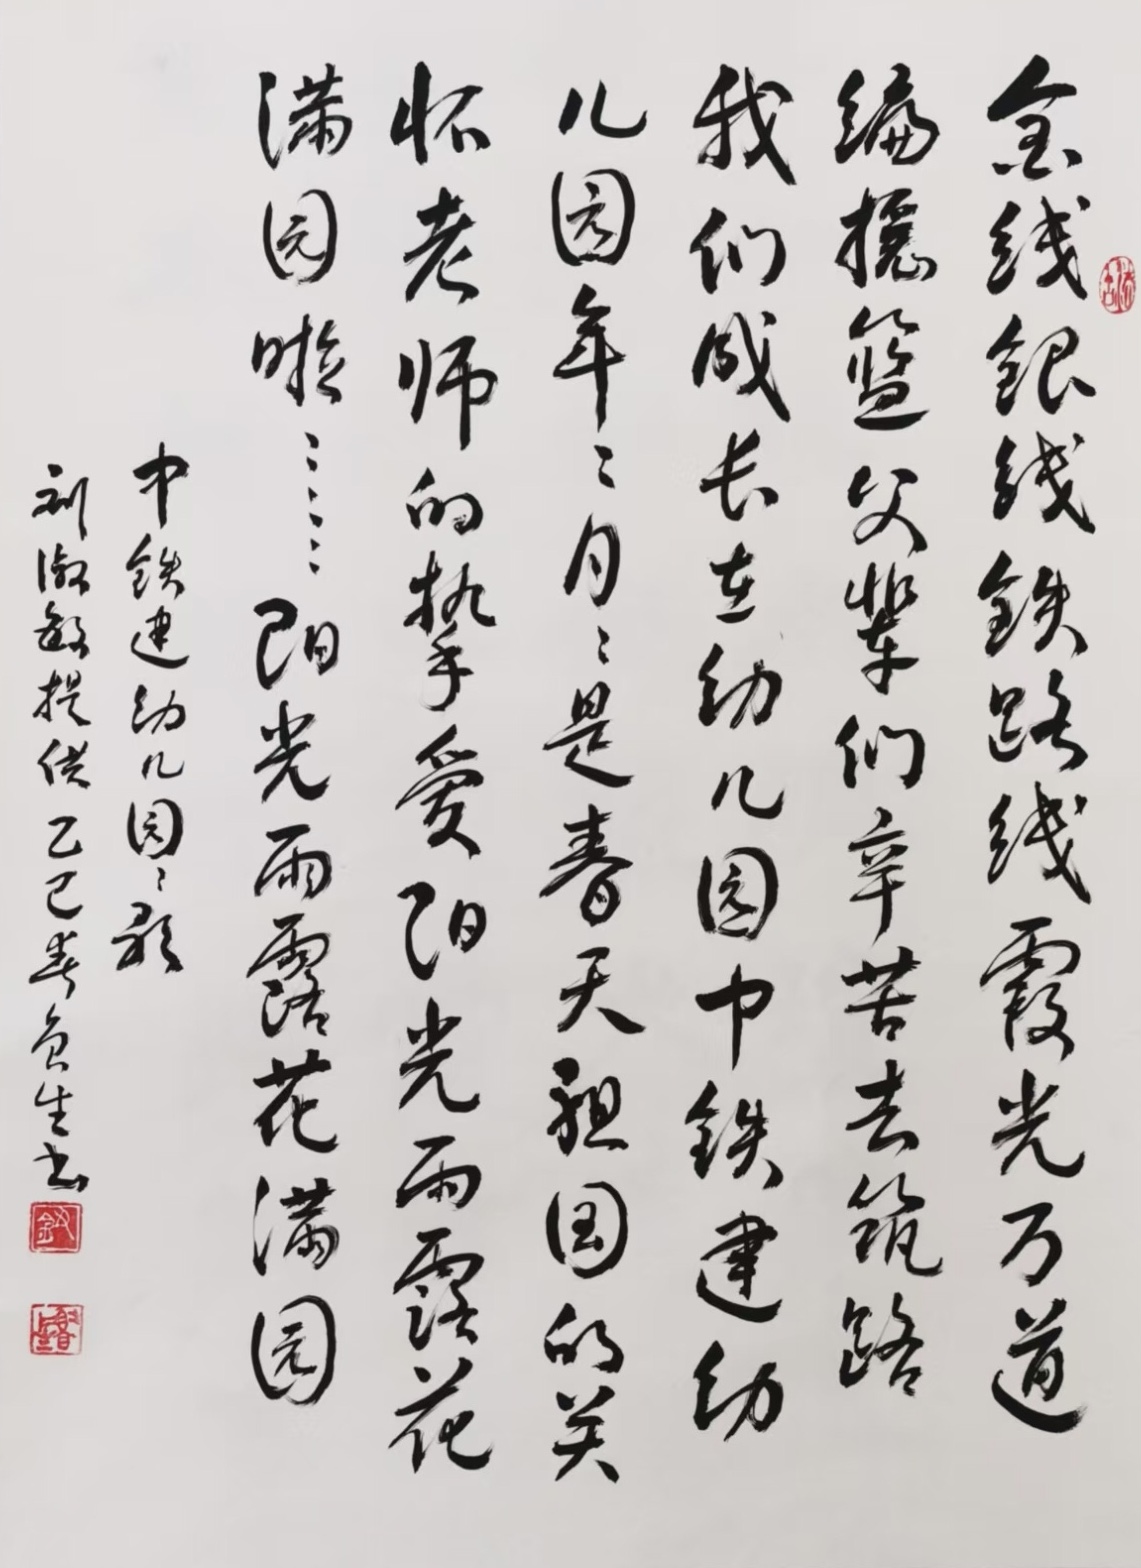 金线银线铁路线霞光万道
编摇篮父辈们辛苦去筑路
我们成长在幼儿园中铁建幼
儿园年〻月〻是春天祖国的关
怀老师的挚爱阳光雨露花
满园啦〻〻〻阳光雨露花满园
中铁建幼儿园〻歌
刘淑敏提供乙巳春
生书